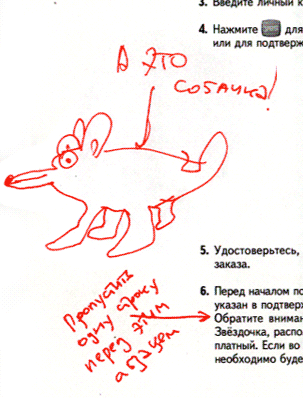 3. Введите личный к
4. Нажмите для
или для подтверж
А ЭТО
СОБАЧКА!
5. Удостоверьтесь,
заказа.
6. Перед началом по
указан в подтверж
Обратите вниман
Звёздочка, распо
платный. Если во
необходимо буде
Пропустить
одну строку
перед этим
абзацем